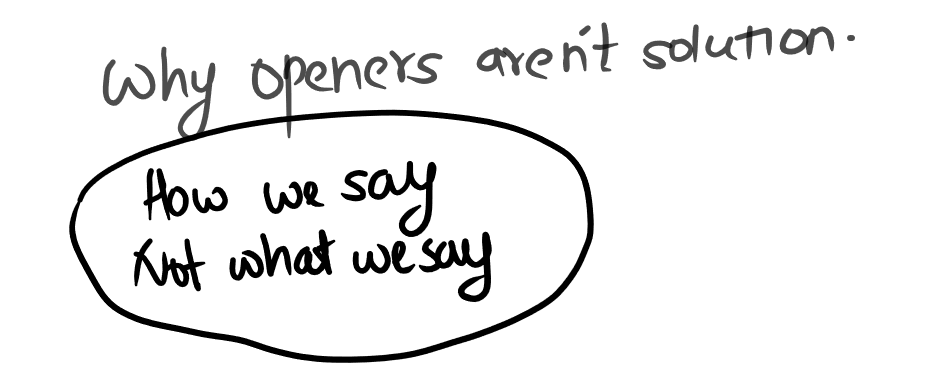 Why openers aren't solution.
How we say
Not what we say